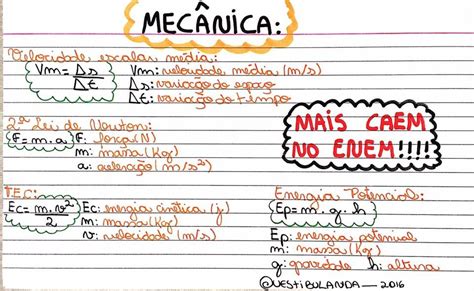 MECÂNICA:
Velocidade escalar média:
Vm = Δs / Δt
Vm: velocidade média (m/s)
Δs: variação do espaço
Δt: variação do tempo
MAIS CAEM
NO ENEM!!!!
2ª Lei de Newton:
F = m.a
F: força (N)
m: massa (Kg)
a: aceleração (m/s²)
T.E.C:
Ec = m.v² / 2
Ec: energia cinética (j)
m: massa (Kg)
v: velocidade (m/s)
Energia Potencial:
Ep = m.g.h
Ep: energia potencial
m: massa (Kg)
g: gravidade h: altura
@VESTIBULANDA__2016